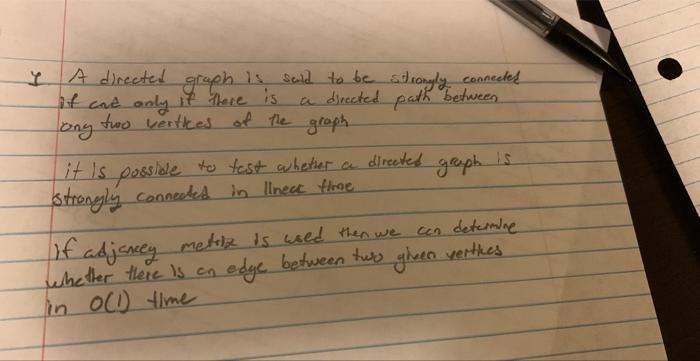 1 A directed graph is said to be strongly connected
if and only if there is a directed path between
any two vertices of the graph
it is possible to test whether a directed graph is
strongly connected in linear time
if adjancey metrix is used then we can determine
whether there is an edge between two given vertices
in O(1) time